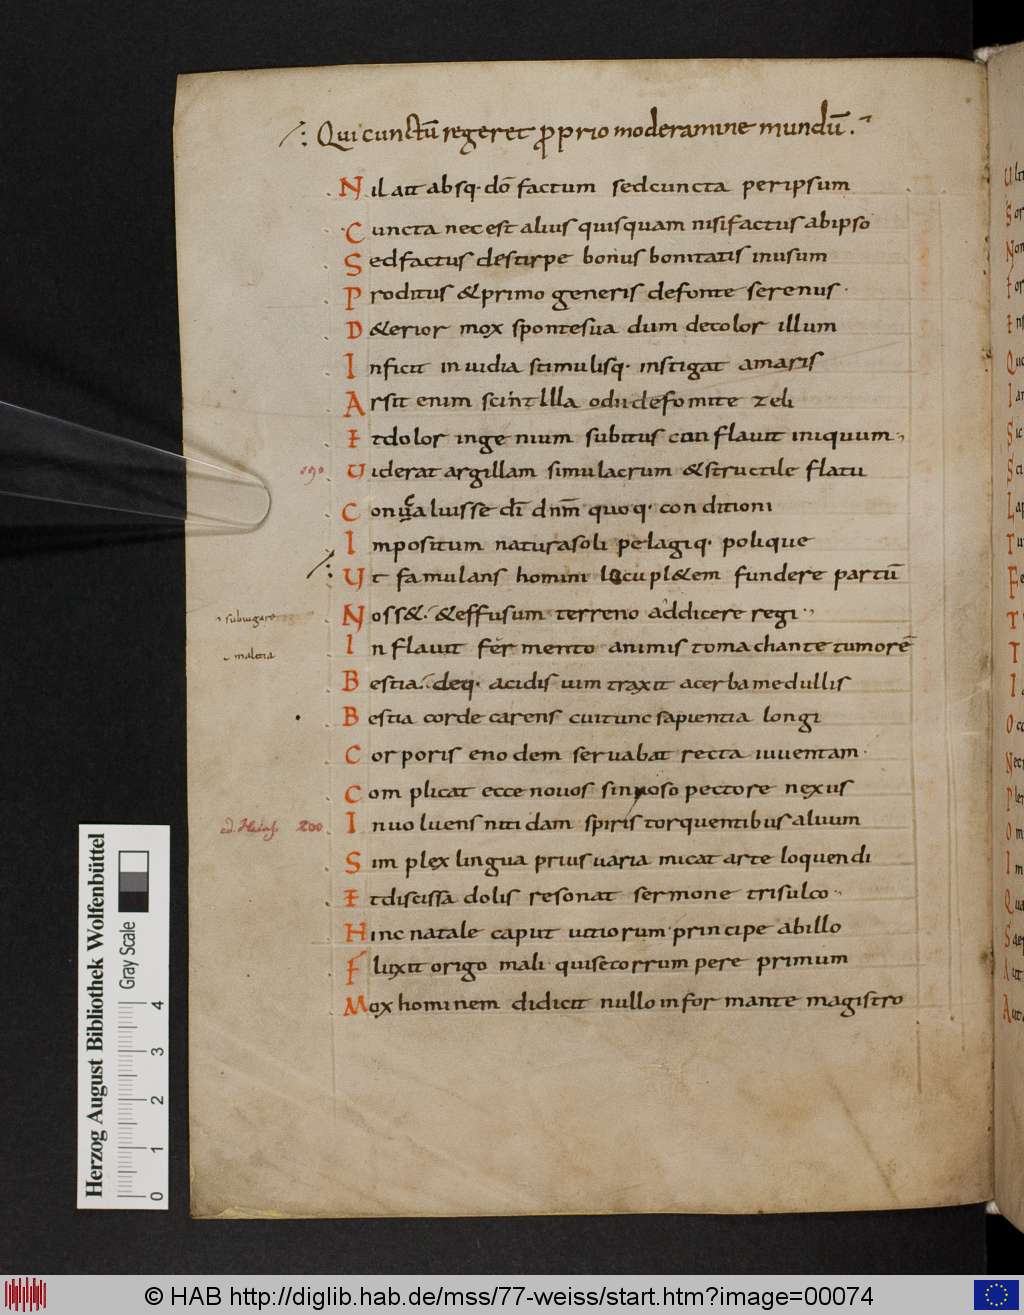 Qui cunctū regeret ꝓprio moderamine mundū.
Nil ait absq· dō factum sed cuncta per ipsum
Cuncta nec est alius quisquam nisi factus ab ipso
Sed factus de stirpe bonus bonitatis in usum
Proditus & primo generis de fonte serenus·
D&erior mox sponte sua dum decolor illum
Inficit inuidia stimulisq· instigat amaris
Arsit enim scintllla odii de fomite zeli
Et dolor ingenium subitus conflauit iniquum
190
Uiderat argillam simulacrum & structile flatu
Concaluisse dī dnm̄ quoq· conditioni
Impositum natura soli pelagiq· polique
Ut famulans homini locupl&em fundere partū
subiugare
Noss&· &effusum terreno addicere regi·
malitia
Inflauit fermento animis tomachante tumorē
Bestia deq· acidis uim traxit acerba medullis
Bestia corde carens cui tunc sapientia longi
Corporis enodem seruabat recta iuuentam·
Complicat ecce nouos sinuoso pectore nexus
ed. Heins. 200
Inuoluens nitidam spiris torquentibus aluum
Simplex lingua prius uaria micat arte loquendi
Et discissa dolis resonat sermone trisulco
Hinc natale caput uitiorum principe ab illo
Fluxit origo mali qui se corrumpere primum
Mox hominem didicit nullo informante magistro
Herzog August Bibliothek Wolfenbüttel
Gray Scale
0 1 2 3 4
© HAB http://diglib.hab.de/mss/77-weiss/start.htm?image=00074